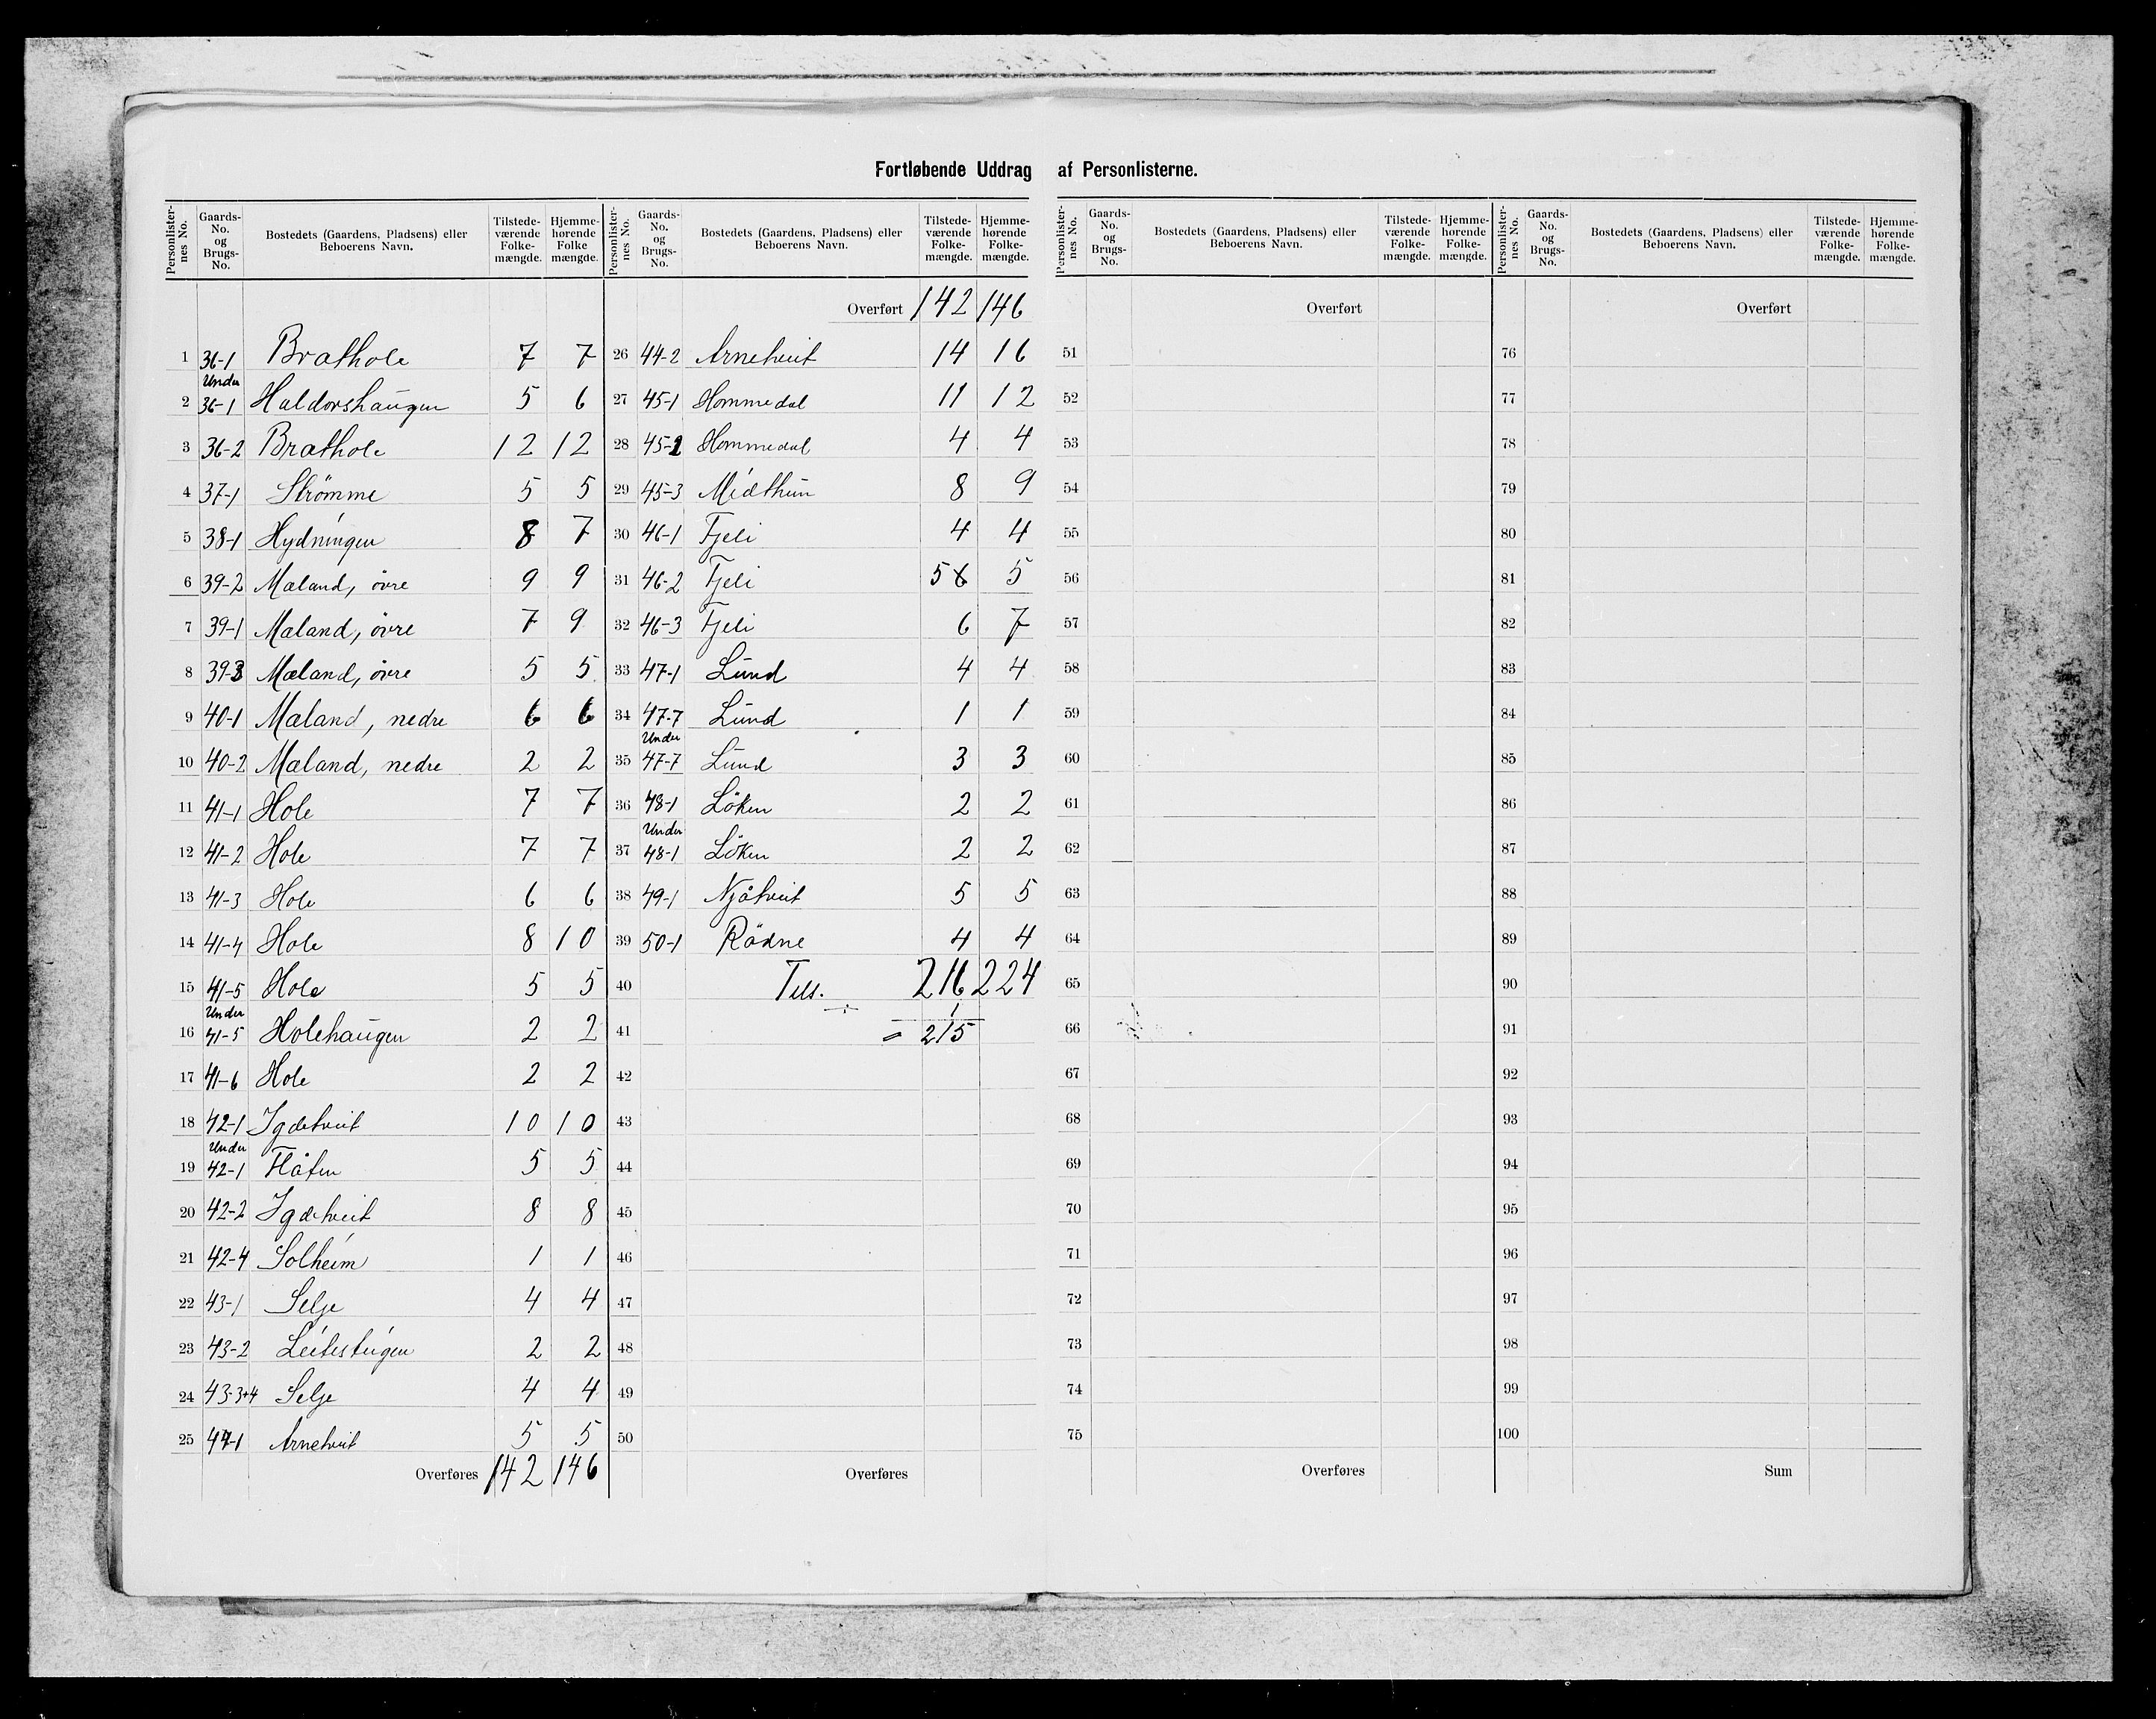 Fortløbende Uddrag af Personlisterne.
Personlisternes No. Gaards-No. og Brugs-No. Bostedets (Gaardens, Pladsens) eller Beboerens Navn. Tilstedeværende Folkemængde. Hjemmehørende Folkemængde.
1 36-1 Brathole 7 7
2 Under 36-1 Haldorshaugen 5 6
3 36-2 Brathole 12 12
4 37-1 Strömme 5 5
5 38-1 Hydningen 8 7
6 39-2 Mæland, övre 9 9
7 39-1 Mæland, övre 7 9
8 39-3 Mæland, övre 5 5
9 40-1 Mæland, nedre 6 6
10 40-2 Mæland, nedre 2 2
11 41-1 Hole 7 7
12 41-2 Hole 7 7
13 41-3 Hole 6 6
14 41-4 Hole 8 10
15 41-5 Hole 5 5
16 Under 41-5 Holehaugen 2 2
17 41-6 Hole 2 2
18 42-1 Igdetveit 10 10
19 Under 42-1 Flåten 5 5
20 42-2 Igdetveit 8 8
21 42-4 Solheim 1 1
22 43-1 Selje 4 4
23 43-2 Leitestuigen 2 2
24 43-3+4 Selje 4 4
25 44-1 Arnetveit 5 5
Overføres 142 146
Personlisternes No. Gaards-No. og Brugs-No. Bostedets (Gaardens, Pladsens) eller Beboerens Navn. Tilstedeværende Folkemængde. Hjemmehørende Folkemængde.
Overført 142 146
26 44-2 Arnetveit 14 16
27 45-1 Hommedal 11 12
28 45-2 Hommedal 4 4
29 45-3 Midthun 8 9
30 46-1 Fjeli 4 4
31 46-2 Fjeli 5 6 5
32 46-3 Fjeli 6 7
33 47-1 Lund 4 4
34 47-7 Lund 1 1
35 Under 47-7 Lund 3 3
36 48-1 Löken 2 2
37 Under 48-1 Löken 2 2
38 49-1 Njåtveit 5 5
39 50-1 Rödne 4 4
40 Tils. 216 224
÷ 1
41 = 215
42
43
44
45
46
47
48
49
50
Overføres
Personlisternes No. Gaards-No. og Brugs-No. Bostedets (Gaardens, Pladsens) eller Beboerens Navn. Tilstedeværende Folkemængde. Hjemmehørende Folkemængde.
Overført
51
52
53
54
55
56
57
58
59
60
61
62
63
64
65
66
67
68
69
70
71
72
73
74
75
Overføres
Personlisternes No. Gaards-No. og Brugs-No. Bostedets (Gaardens, Pladsens) eller Beboerens Navn. Tilstedeværende Folkemængde. Hjemmehørende Folkemængde.
Overført
76
77
78
79
80
81
82
83
84
85
86
87
88
89
90
91
92
93
94
95
96
97
98
99
100
Sum